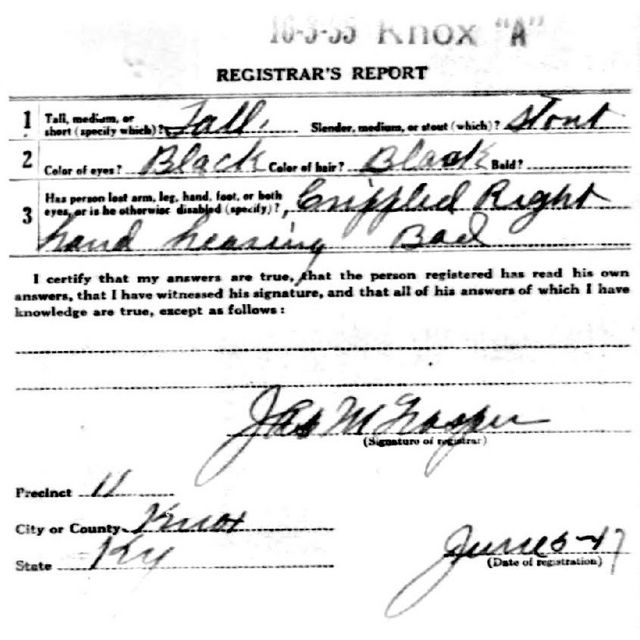 16-3-35 Knox "A"
REGISTRAR'S REPORT
1 Tall, medium, or short (specify which)? Tall. Slender, medium, or stout (which)? Stout
2 Color of eyes? Black Color of hair? Black Bald?
3 Has person lost arm, leg, hand, foot, or both eyes, or is he otherwise disabled (specify)? Crippled Right
hand hearing Bad
I certify that my answers are true, that the person registered has read his own
answers, that I have witnessed his signature, and that all of his answers of which I have
knowledge are true, except as follows:
Jas M
(Signature of registrar)
Precinct 11
City or County Knox
State Ky
June 5-17
(Date of registration)